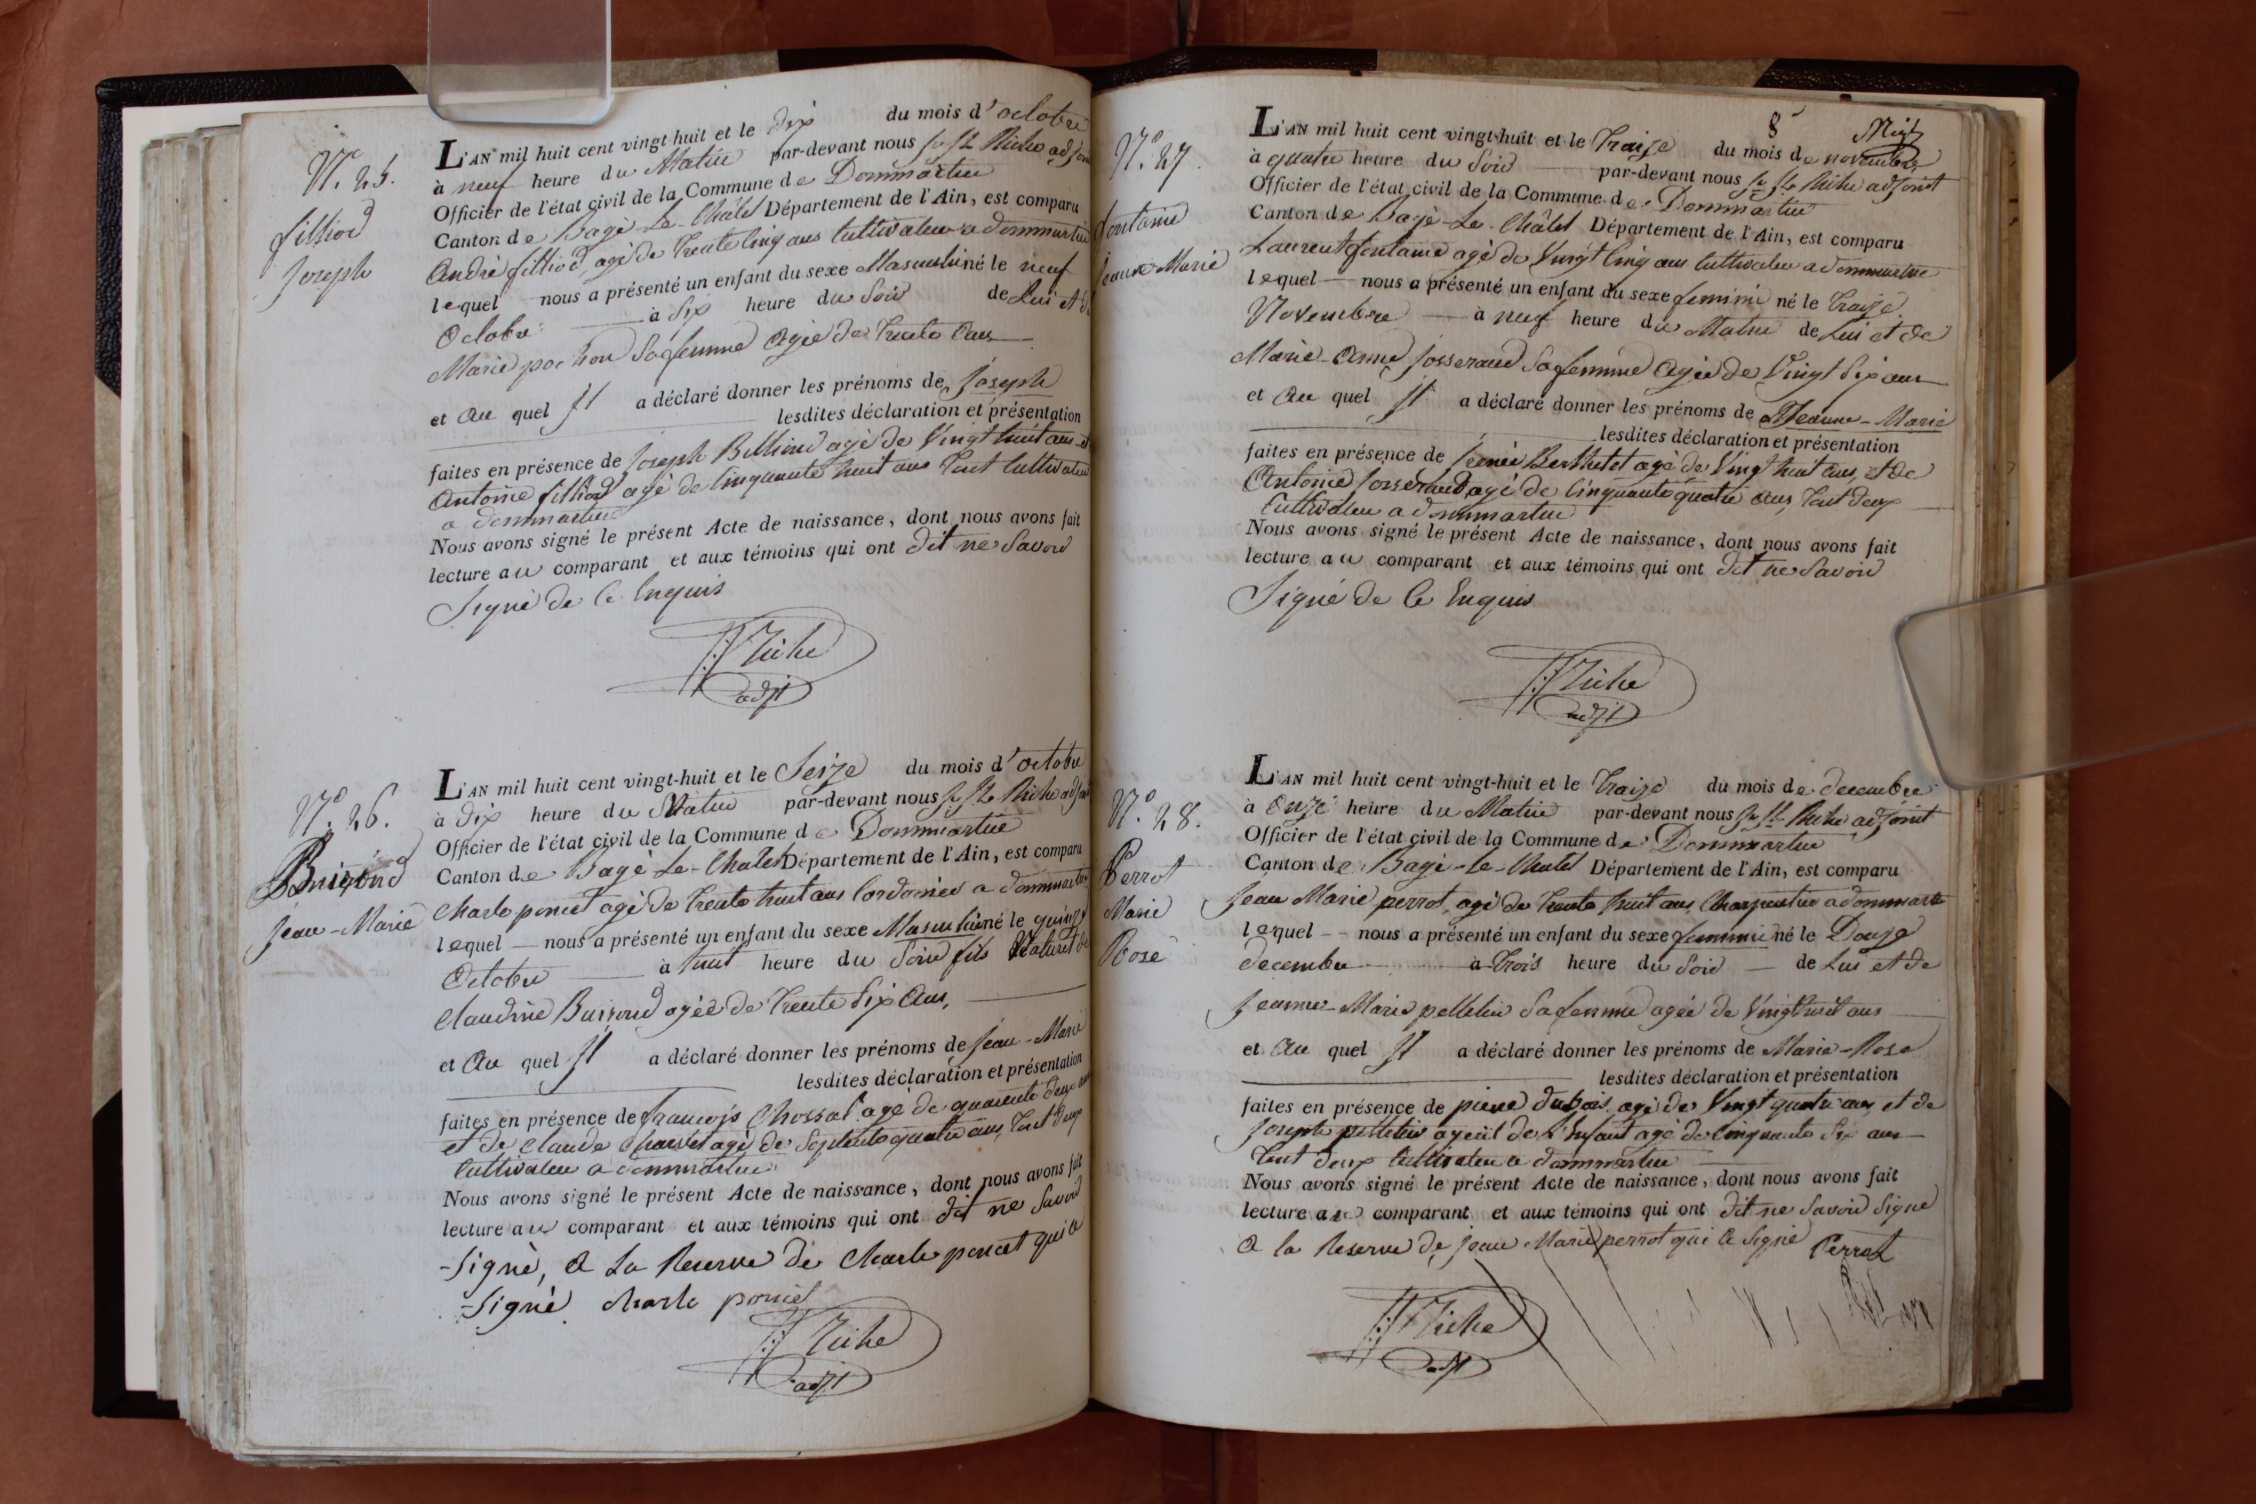 N.º 25.
filliod
Joseph
L'AN mil huit cent vingt huit et le dix du mois d'octobre
à neuf heure du Matin par-devant nous Riche adjoint
Officier de l'état civil de la Commune de Dommartin
Canton de Bagé-Le-Châtel Département de l'Ain, est comparu
André filliod, agé de trente cinq ans Cultivateur a dommartin
lequel nous a présenté un enfant du sexe Masculin né le neuf
Octobre à Six heure du Soir de Lui et de
Marie pochon Sa femme Agée de trente Ans
et Au quel Il a déclaré donner les prénoms de Joseph
lesdites déclaration et présentation
faites en présence de Joseph Billioud agé de Vingt huit ans et
Antoine filliod agé de Cinquante huit ans tout Cultivateur
a dommartin
Nous avons signé le présent Acte de naissance, dont nous avons fait
lecture au comparant et aux témoins qui ont dit ne Savoir
Signé de Ce Enquis
Riche
adjt
N.º 26.
Buirond
Jean-Marie
L'AN mil huit cent vingt-huit et le Seize du mois d'octobre
à dix heure du Matin par-devant nous Riche adjoint
Officier de l'état civil de la Commune de Dommartin
Canton de Bagé Le-Chatel Département de l'Ain, est comparu
Charle poncet agé de trente huit ans Cordonier a dommartin
lequel nous a présenté un enfant du sexe Masculin né le quinze
Octobre à huit heure du Soir fils Naturel de
Claudine Buirond agée de trente Six Ans,
et Au quel Il a déclaré donner les prénoms de Jean-Marie
lesdites déclaration et présentation
faites en présence de francois Chossat agé de quarente deux ans
et de Claude Charvet agé de Septente quatre ans, tout deux
Cultivateur a dommartin
Nous avons signé le présent Acte de naissance, dont nous avons fait
lecture au comparant et aux témoins qui ont dit ne Savoir
Signé, A La Reserve de Charle poncet qui a
Signé. Charle poncet
Riche
adjt
8
N.º 27.
fontaine
Jeanne Marie
L'AN mil huit cent vingt-huit et le Traize du mois de novembre
à quatre heure du Soir par-devant nous Riche adjoint
Officier de l'état civil de la Commune de Dommartin
Canton de Bagé-Le-Châtel Département de l'Ain, est comparu
Laurent fontaine agé de Vingt Cinq ans Cultivateur a dommartin
lequel nous a présenté un enfant du sexe feminin né le Traize
Novembre à neuf heure du Matin de Lui et de
Marie-Anne Josserand Sa femme Agée de Vingt Six ans
et Au quel Il a déclaré donner les prénoms de Jeanne-Marie
lesdites déclaration et présentation
faites en présence de Berthelet agé de Vingt huit ans, et de
Antoine Josserand agé de Cinquante quatre ans, tout deux
Cultivateur a dommartin
Nous avons signé le présent Acte de naissance, dont nous avons fait
lecture au comparant et aux témoins qui ont dit ne Savoir
Signé de Ce Enquis
Riche
adjt
N.º 28.
Perrot
Marie
Rose
L'AN mil huit cent vingt-huit et le Traize du mois de decembre
à Onze heure du Matin par-devant nous Riche adjoint
Officier de l'état civil de la Commune de Dommartin
Canton de Bagé-Le Chatel Département de l'Ain, est comparu
Jean Marie perrot, agé de trente huit ans, Charpentier a dommartin
lequel nous a présenté un enfant du sexe feminin né le Douze
decembre à Trois heure du Soir de Lui et de
Jeanne-Marie pelletier Sa femme agée de Vingt huit ans
et Au quel Il a déclaré donner les prénoms de Marie-Rose
lesdites déclaration et présentation
faites en présence de pierre dubois agé de Vingt quatre ans et de
Joseph pelletier ayeul de l'Enfant agé de Cinquante Six ans
tout deux Cultivateur a dommartin
Nous avons signé le présent Acte de naissance, dont nous avons fait
lecture au comparant et aux témoins qui ont dit ne Savoir Signé
A la Reserve de Jean Marie perrot qui A Signé Perrot
Riche
adjt